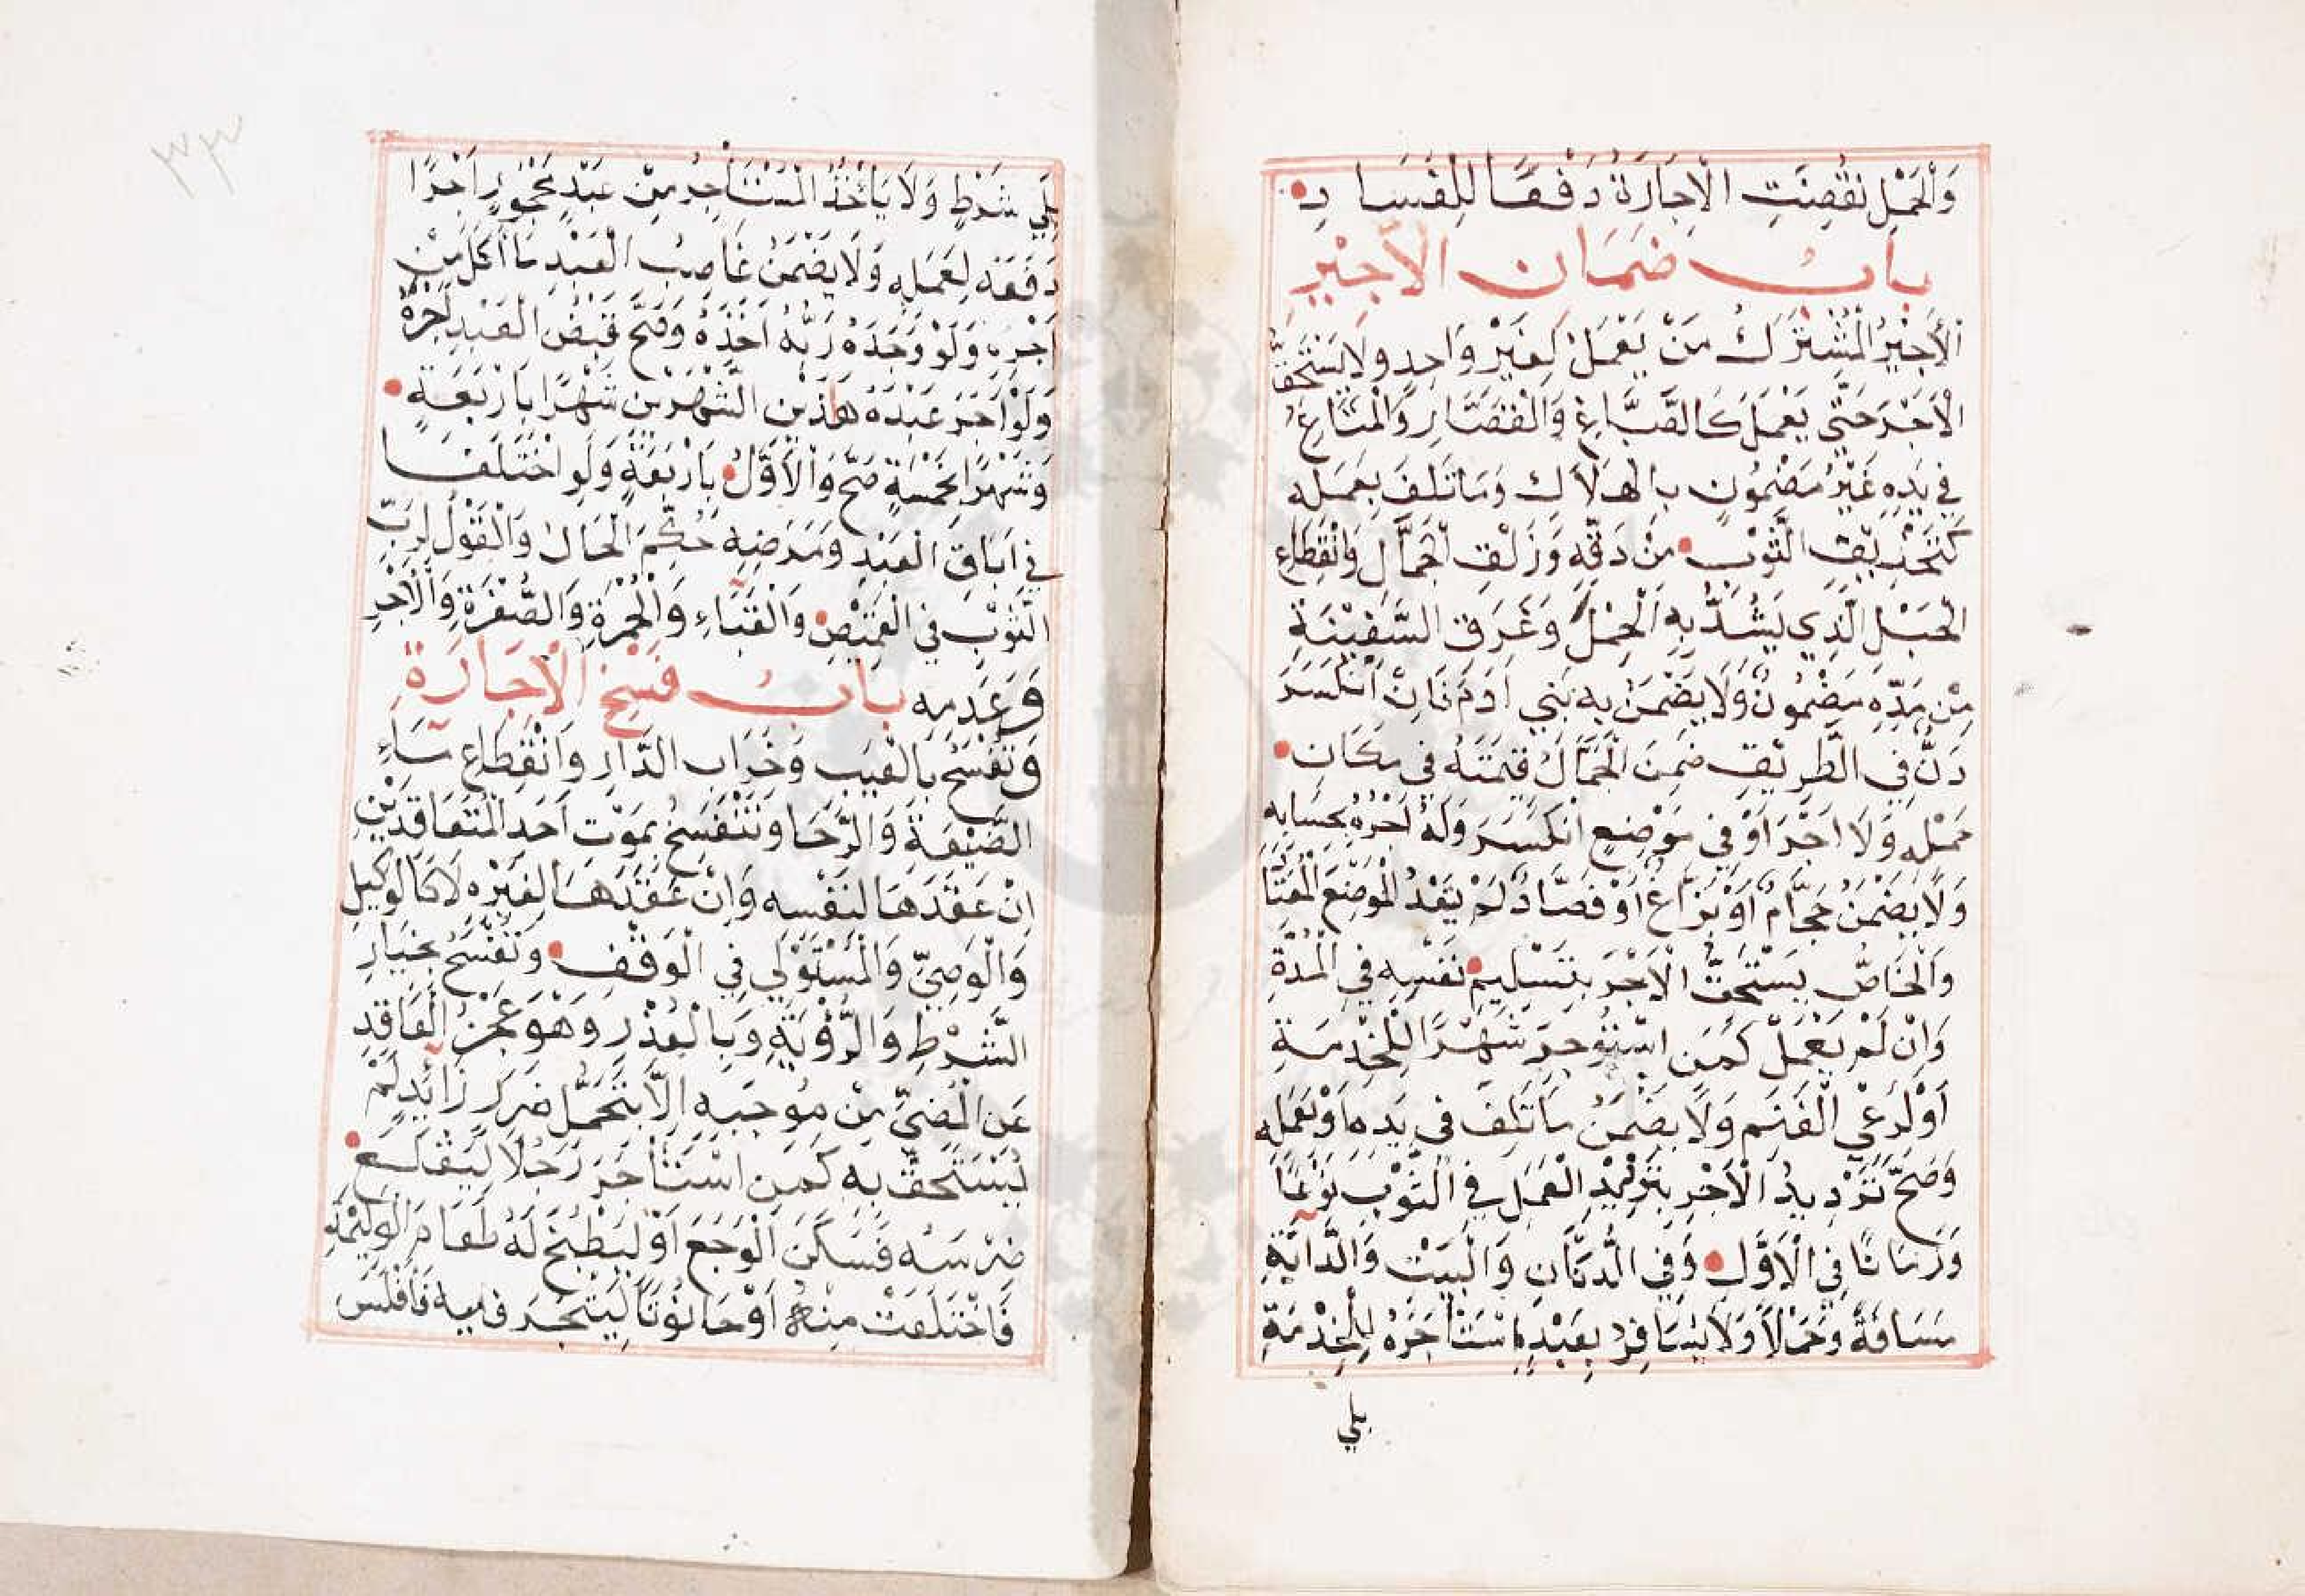 وَالْحَمْلِ نُقِضَتِ الْاِجَارَةُ دَفْعًا لِلْفَسَادِ
بَابُ ضَمَانِ الْاَجِيْرِ
اَلْاَجِيْرُ الْمُشْتَرَكُ مَنْ يَعْمَلُ لِغَيْرِ وَاحِدٍ وَلَا يَسْتَحِقُّ
الْاَجْرَ حَتّٰى يَعْمَلَ كَالصَّبَّاغِ وَالْقَصَّارِ وَالْمَتَاعُ
فِي يَدِهِ غَيْرُ مَضْمُونٍ بِالْهَلَاكِ وَمَا تَلَفَ بِعَمَلِهِ
كَتَخْرِيْقِ الثَّوْبِ مِنْ دَقِّهِ وَزَلْقِ الْحَمَّالِ وَانْقِطَاعِ
الْحَبْلِ الَّذِي يَشُدُّ بِهِ الْحِمْلَ وَغَرَقِ السَّفِيْنَةِ
مِنْ مَدِّهِ مَضْمُونٌ وَلَا يَضْمَنُ بِهِ بَنِي اٰدَمَ فَاِنْ اَنْكَسَرَ
دَنٌّ فِي الطَّرِيْقِ ضَمِنَ الْحَمَّالُ قِيْمَتَهُ فِي مَكَانِ
حَمْلِهِ وَلَا اَجْرَ اَوْ فِي مَوْضِعٍ اَنْكَسَرَ وَلَهُ اَجْرُهُ بِحِسَابِهِ
وَلَا يَضْمَنُ حَجَّامٌ اَوْ بَزَّاغٌ اَوْ فَصَّادٌ لَمْ يَتَعَدَّ الْمَوْضِعَ الْمُعْتَادَ
وَالْخَاصُّ يَسْتَحِقُّ الْاَجْرَ بِتَسْلِيْمِ نَفْسِهِ فِي الْمُدَّةِ
وَاِنْ لَمْ يَعْمَلْ كَمَنِ اسْتُوْجِرَ شَهْرًا لِلْخِدْمَةِ
اَوْ لِرَعْيِ الْغَنَمِ وَلَا يَضْمَنُ مَا تَلِفَ فِي يَدِهِ اَوْ بِعَمَلِهِ
وَصَحَّ تَرْدِيْدُ الْاَجْرِ بِتَرْدِيْدِ الْعَمَلِ فِي الثَّوْبِ نَوْعًا
وَزَمَانًا فِي الْاَوَّلِ وَفِي الدُّكَّانِ وَالْبَيْتِ وَالدَّابَّةِ
مَسَافَةً وَحَمْلًا وَلَا يُسَافِرُ بِعَبْدٍ اسْتَأْجَرَهُ لِلْخِدْمَةِ
بلي
بِلَا شَرْطٍ وَلَا يَأْخُذُ الْمُسْتَأْجِرُ مِنْ عَبْدٍ مَحْجُوْرٍ اَجْرًا
دَفَعَهُ لِعَمَلِهِ وَلَا يَضْمَنُ غَاصِبُ الْعَبْدِ مَا اَكَلَ مِنْ
اَجْرِهِ وَلَوْ وَجَدَهُ رَبُّهُ اَخَذَهُ وَصَحَّ قَبْضُ الْعَبْدِ اَجْرَهُ
وَلَوْ اَجَرَ عَبْدَهُ هٰذَيْنِ الشَّهْرَيْنِ شَهْرًا بِاَرْبَعَةٍ
وَشَهْرًا بِخَمْسَةٍ صَحَّ وَالْاَوَّلُ بِاَرْبَعَةٍ وَلَوِ اخْتَلَفَا
فِي اِبَاقِ الْعَبْدِ وَمَرَضِهِ حُكِّمَ الْحَالُ وَالْقَوْلُ لِرَبِّ
الثَّوْبِ فِي الْقَمِيْصِ وَالْقَبَاءِ وَالْحُمْرَةِ وَالصُّفْرَةِ وَالْاَجْرِ
وَعَدَمِهِ بَابُ فَسْخِ الْاِجَارَةِ
وَتُفْسَخُ بِالْعَيْبِ وَخَرَابِ الدَّارِ وَانْقِطَاعِ مَاءِ
الضَّيْعَةِ وَالرَّحَا وَتَنْفَسِخُ بِمَوْتِ اَحَدِ الْمُتَعَاقِدَيْنِ
اِنْ عَقَدَهَا لِنَفْسِهِ وَاِنْ عَقَدَهَا لِغَيْرِهِ لَا كَالْوَكِيْلِ
وَالْوَصِيِّ وَالْمُتَوَلِّي فِي الْوَقْفِ وَتُفْسَخُ بِخِيَارِ
الشَّرْطِ وَالرُّؤْيَةِ وَبِالْعُذْرِ وَهُوَ عَجْزُ الْعَاقِدِ
عَنِ الْمُضِيِّ مِنْ مُوْجَبِهِ اِلَّا بِتَحَمُّلِ ضَرَرٍ زَائِدٍ لَمْ
يُسْتَحَقَّ بِهِ كَمَنِ اسْتَأْجَرَ رَجُلًا لِيَقْلَعَ
ضِرْسَهُ فَسَكَنَ الْوَجَعُ اَوْ لِيَطْبُخَ لَهُ طَعَامَ الْوَلِيْمَةِ
فَاخْتَلَعَتْ مِنْهُ اَوْ حَانُوْتًا لِيَتَّجِرَ فِيْهِ فَاَفْلَسَ